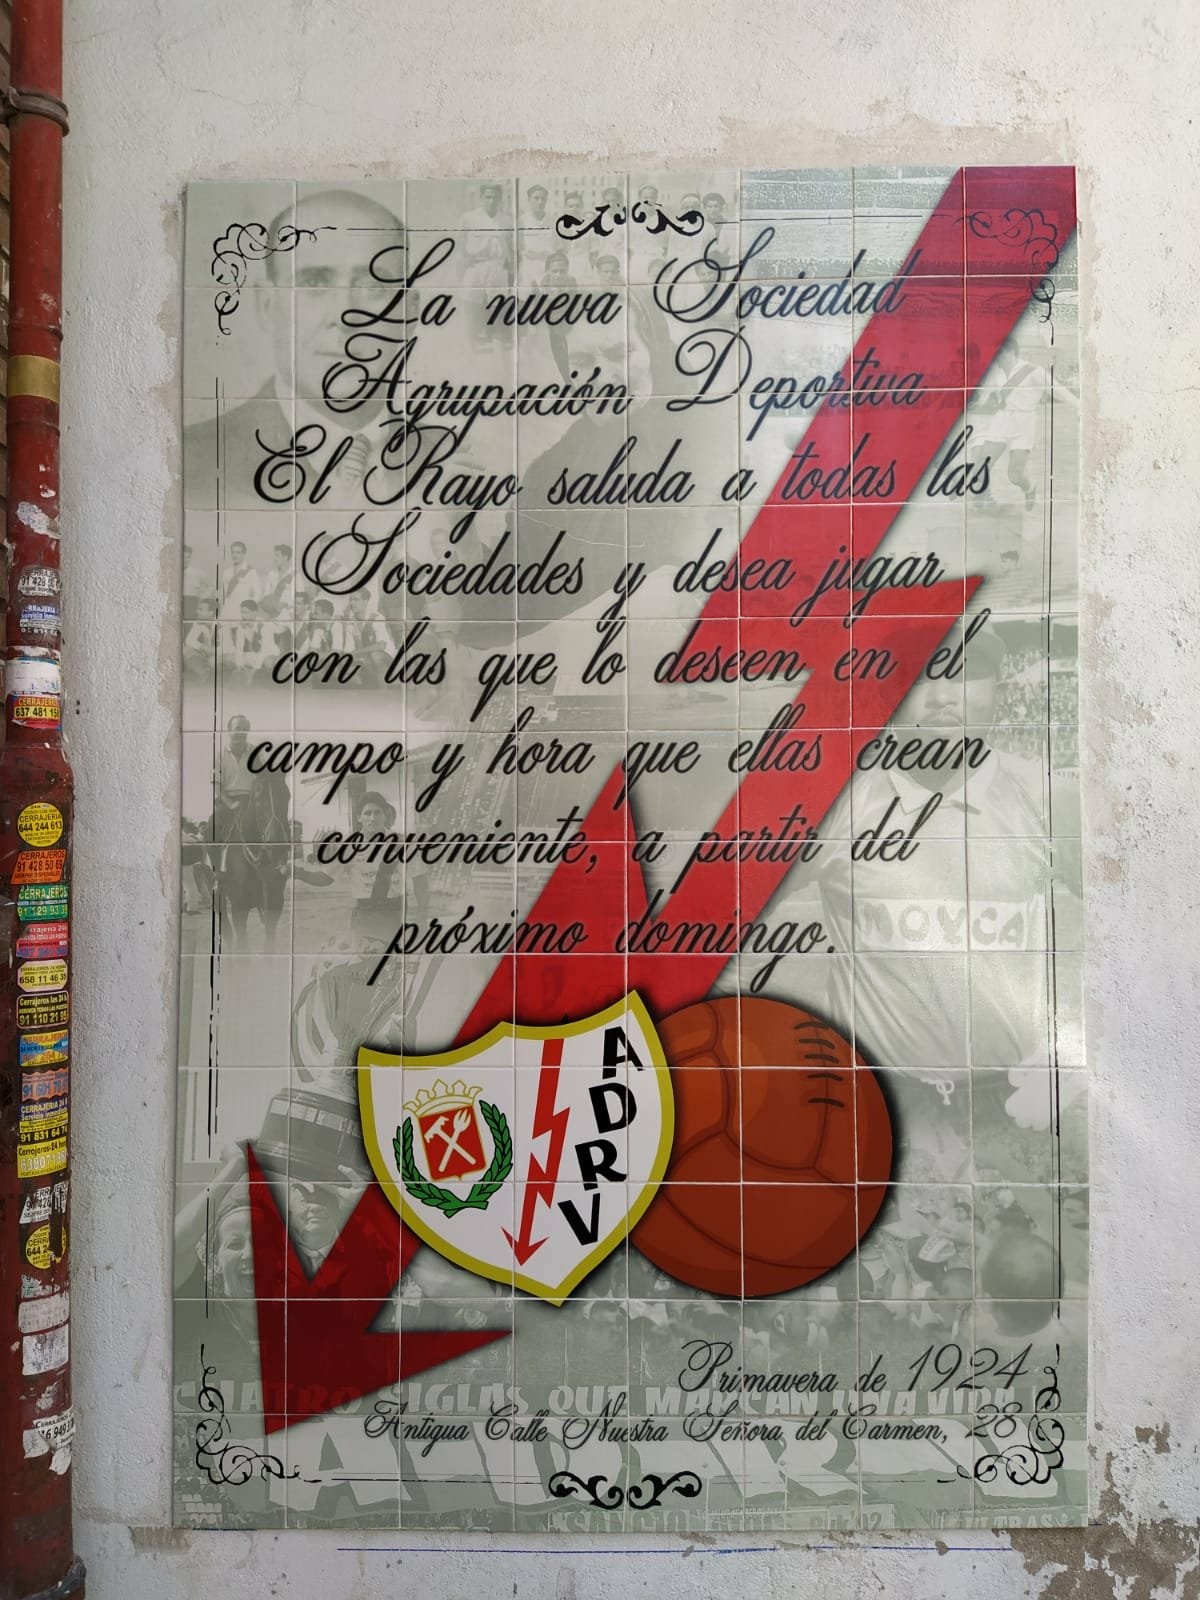 La nueva Sociedad
Agrupación Deportiva
El Rayo saluda a todas las
Sociedades y desea jugar
con las que lo deseen en el
campo y hora que ellas crean
conveniente, a partir del
próximo domingo.
MOYCA
A
D
R
V
Primavera de 1924
CUATRO SIGLAS QUE MARCAN
Antigua Calle Nuestra Señora del Carmen, 28
CERRAJEROS
637 481
CERRAJERIA
644 244 613
CERRAJEROS
91 428 50 69
CERRAJEROS
91 129 93
658 11 46 35
Cerrajeros las 24
91 110 21 95
CERRAJERIA 24
Servicio inmediato
91 831 64
Cerrajeros-24